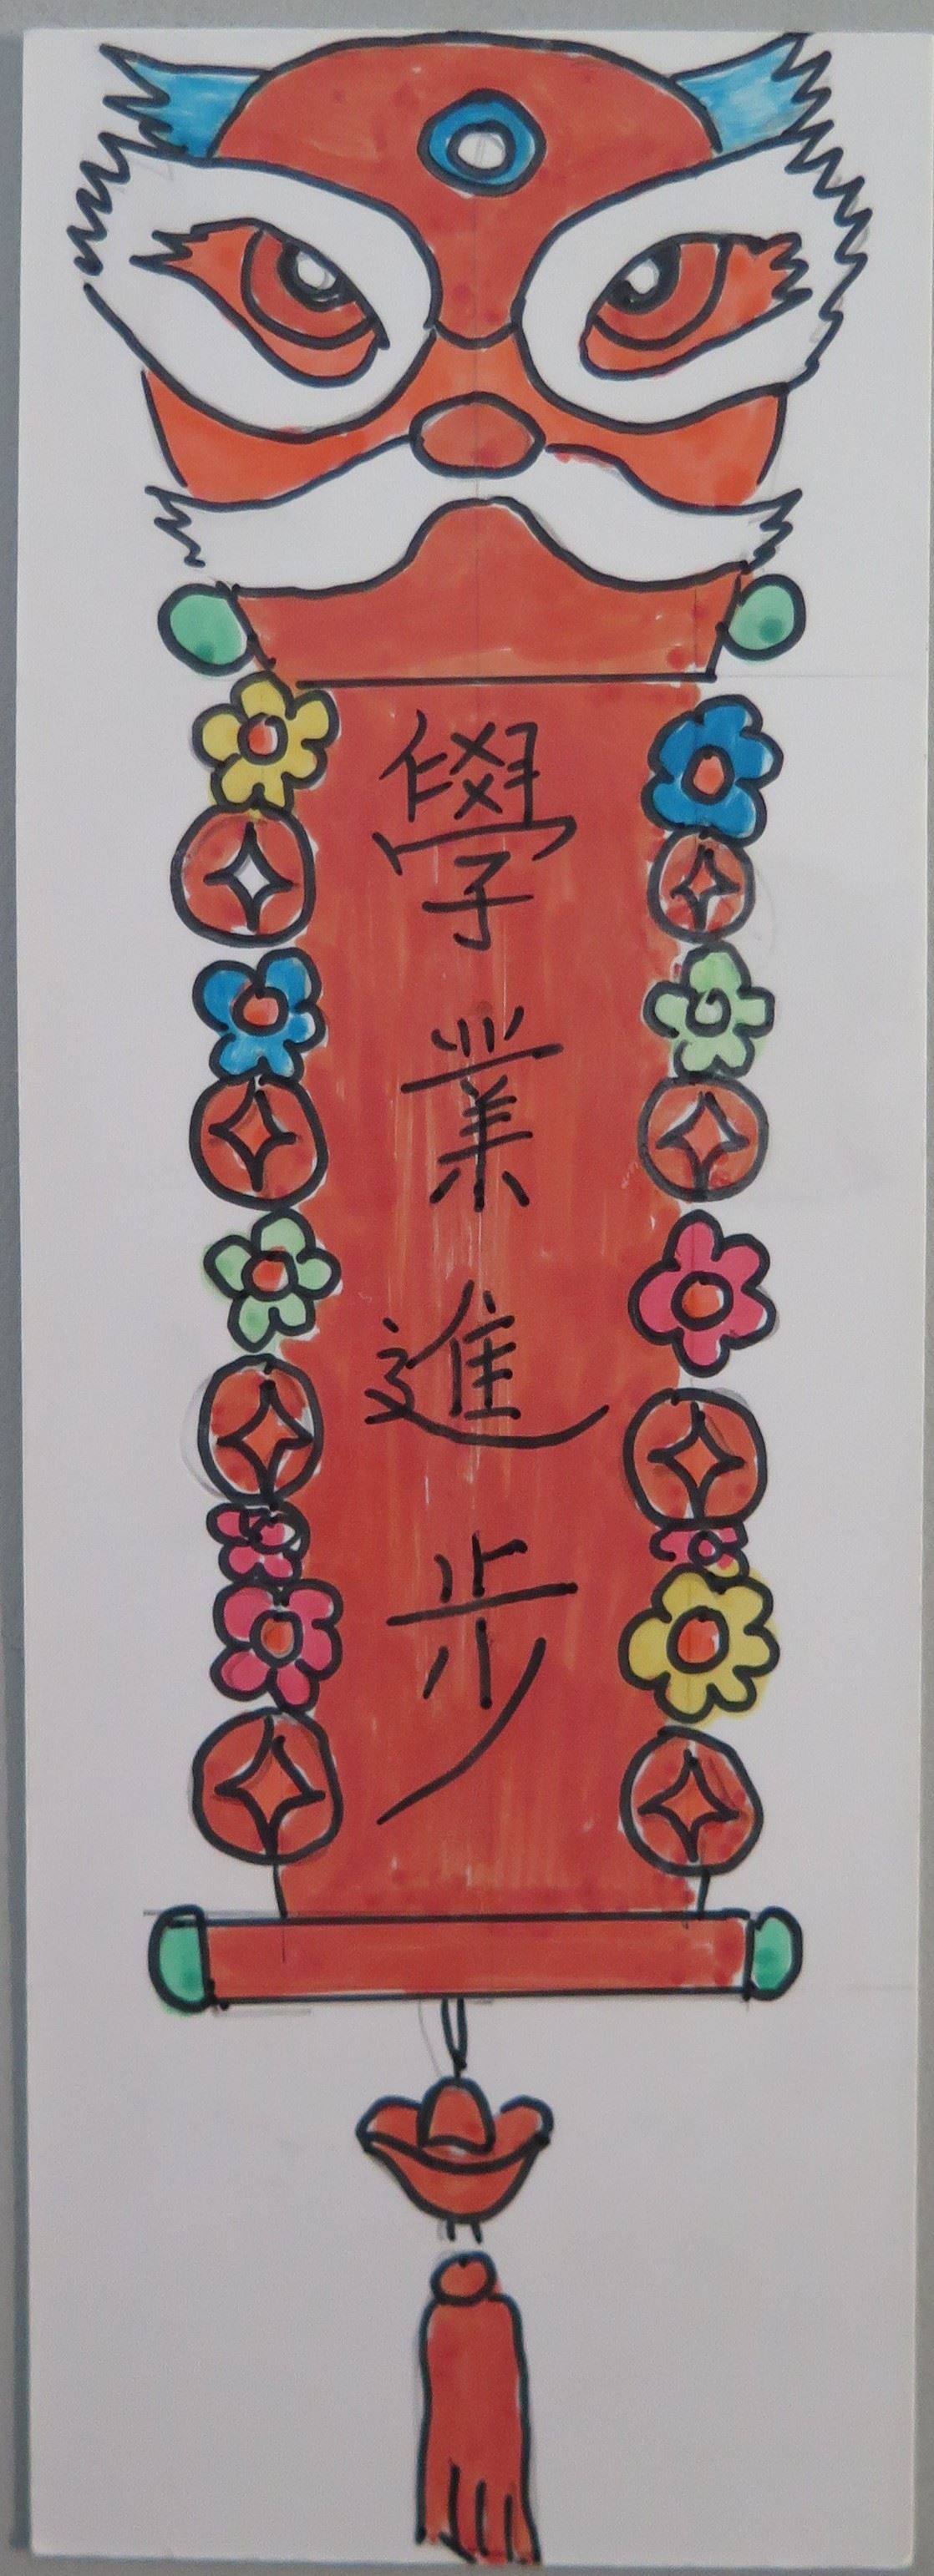 學業進步